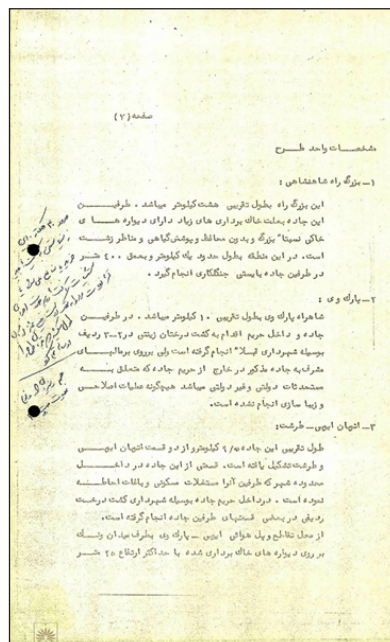 صفحه (۷)
مشخصات واحد طرح
۱- بزرگ راه شاهنشاهی :
این بزرگ راه بطول تقریبی هشت کیلومتر میباشد . طرفین
این جاده بعلت خاک برداری های زیاد دارای دیواره های
خاکی نسبتا" بزرگ و بدون محافظ و پوشش گیاهی و مناظر زشت
است . در این منطقه بطول حدود یک کیلومتر و بعمق ۴۰۰ متر
در طرفین جاده بایستی جنگلکاری انجام گیرد .
۲- پارک وی :
شاهراه پارک وی بطول تقریبی ۱۰ کیلومتر میباشد . در طرفین
جاده و داخل حریم اقدام به کشت درختان زینتی در ۲-۳ ردیف
بوسیله شهرداری قبلا" انجام گرفته است ولی برروی برمالیهای
مشرف به جاده مذکور در خارج از حریم جاده که متعلق به
مستحدثات دولتی و غیر دولتی میباشد هیچگونه عملیات اصلاحی
و زیبا سازی انجام نشده است.
۳- اتوبان اوین - طرشت:
طول تقریبی این جاده کیلومتر و از دو قسمت اتوبان اوین
و طرشت تشکیل یافته است. قسمتی از این جاده در داخل
محدوده شهر که طرفین آنرا مستغلات مسکونی و باغات احاطه
نموده است . درداخل حریم جاده بوسیله شهرداری کشت درخت
ردیفی در بعضی قسمتهای طرفین جاده انجام گرفته است.
از محل تقاطع و پل هوائی اوین - پارک وی بطرف میدان ونک
بر روی دیواره های خاک برداری شده با حداکثر ارتفاع ۲۵ متر